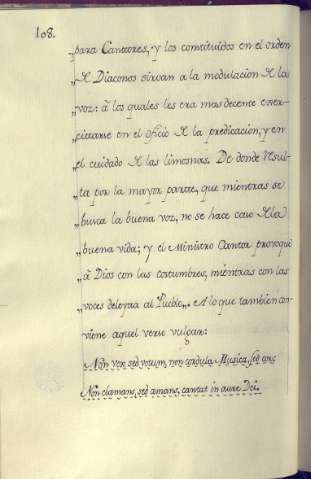 108.
„para Cantores, y los constituidos en el orden
„de Diaconos sirvan a la modulacion de la
„voz: â los quales les era mas decente exer-
„citarse en el oficio de la predicacion, y en
„el cuidado de las limosnas. De donde resul-
„ta por la mayor parte, que mientras se
„busca la buena voz, no se hace caso de la
„buena vida; y el Ministro Cantor provoque
„â Dios con las costumbres, mientras con las
„voces deleyta al Pueblo„. A lo que tambien con-
viene aquel verso vulgar:
Non vox, sed votum, non cordula Musica, sed cor;
Non clamans, sed amans, cantat in aure Dei.